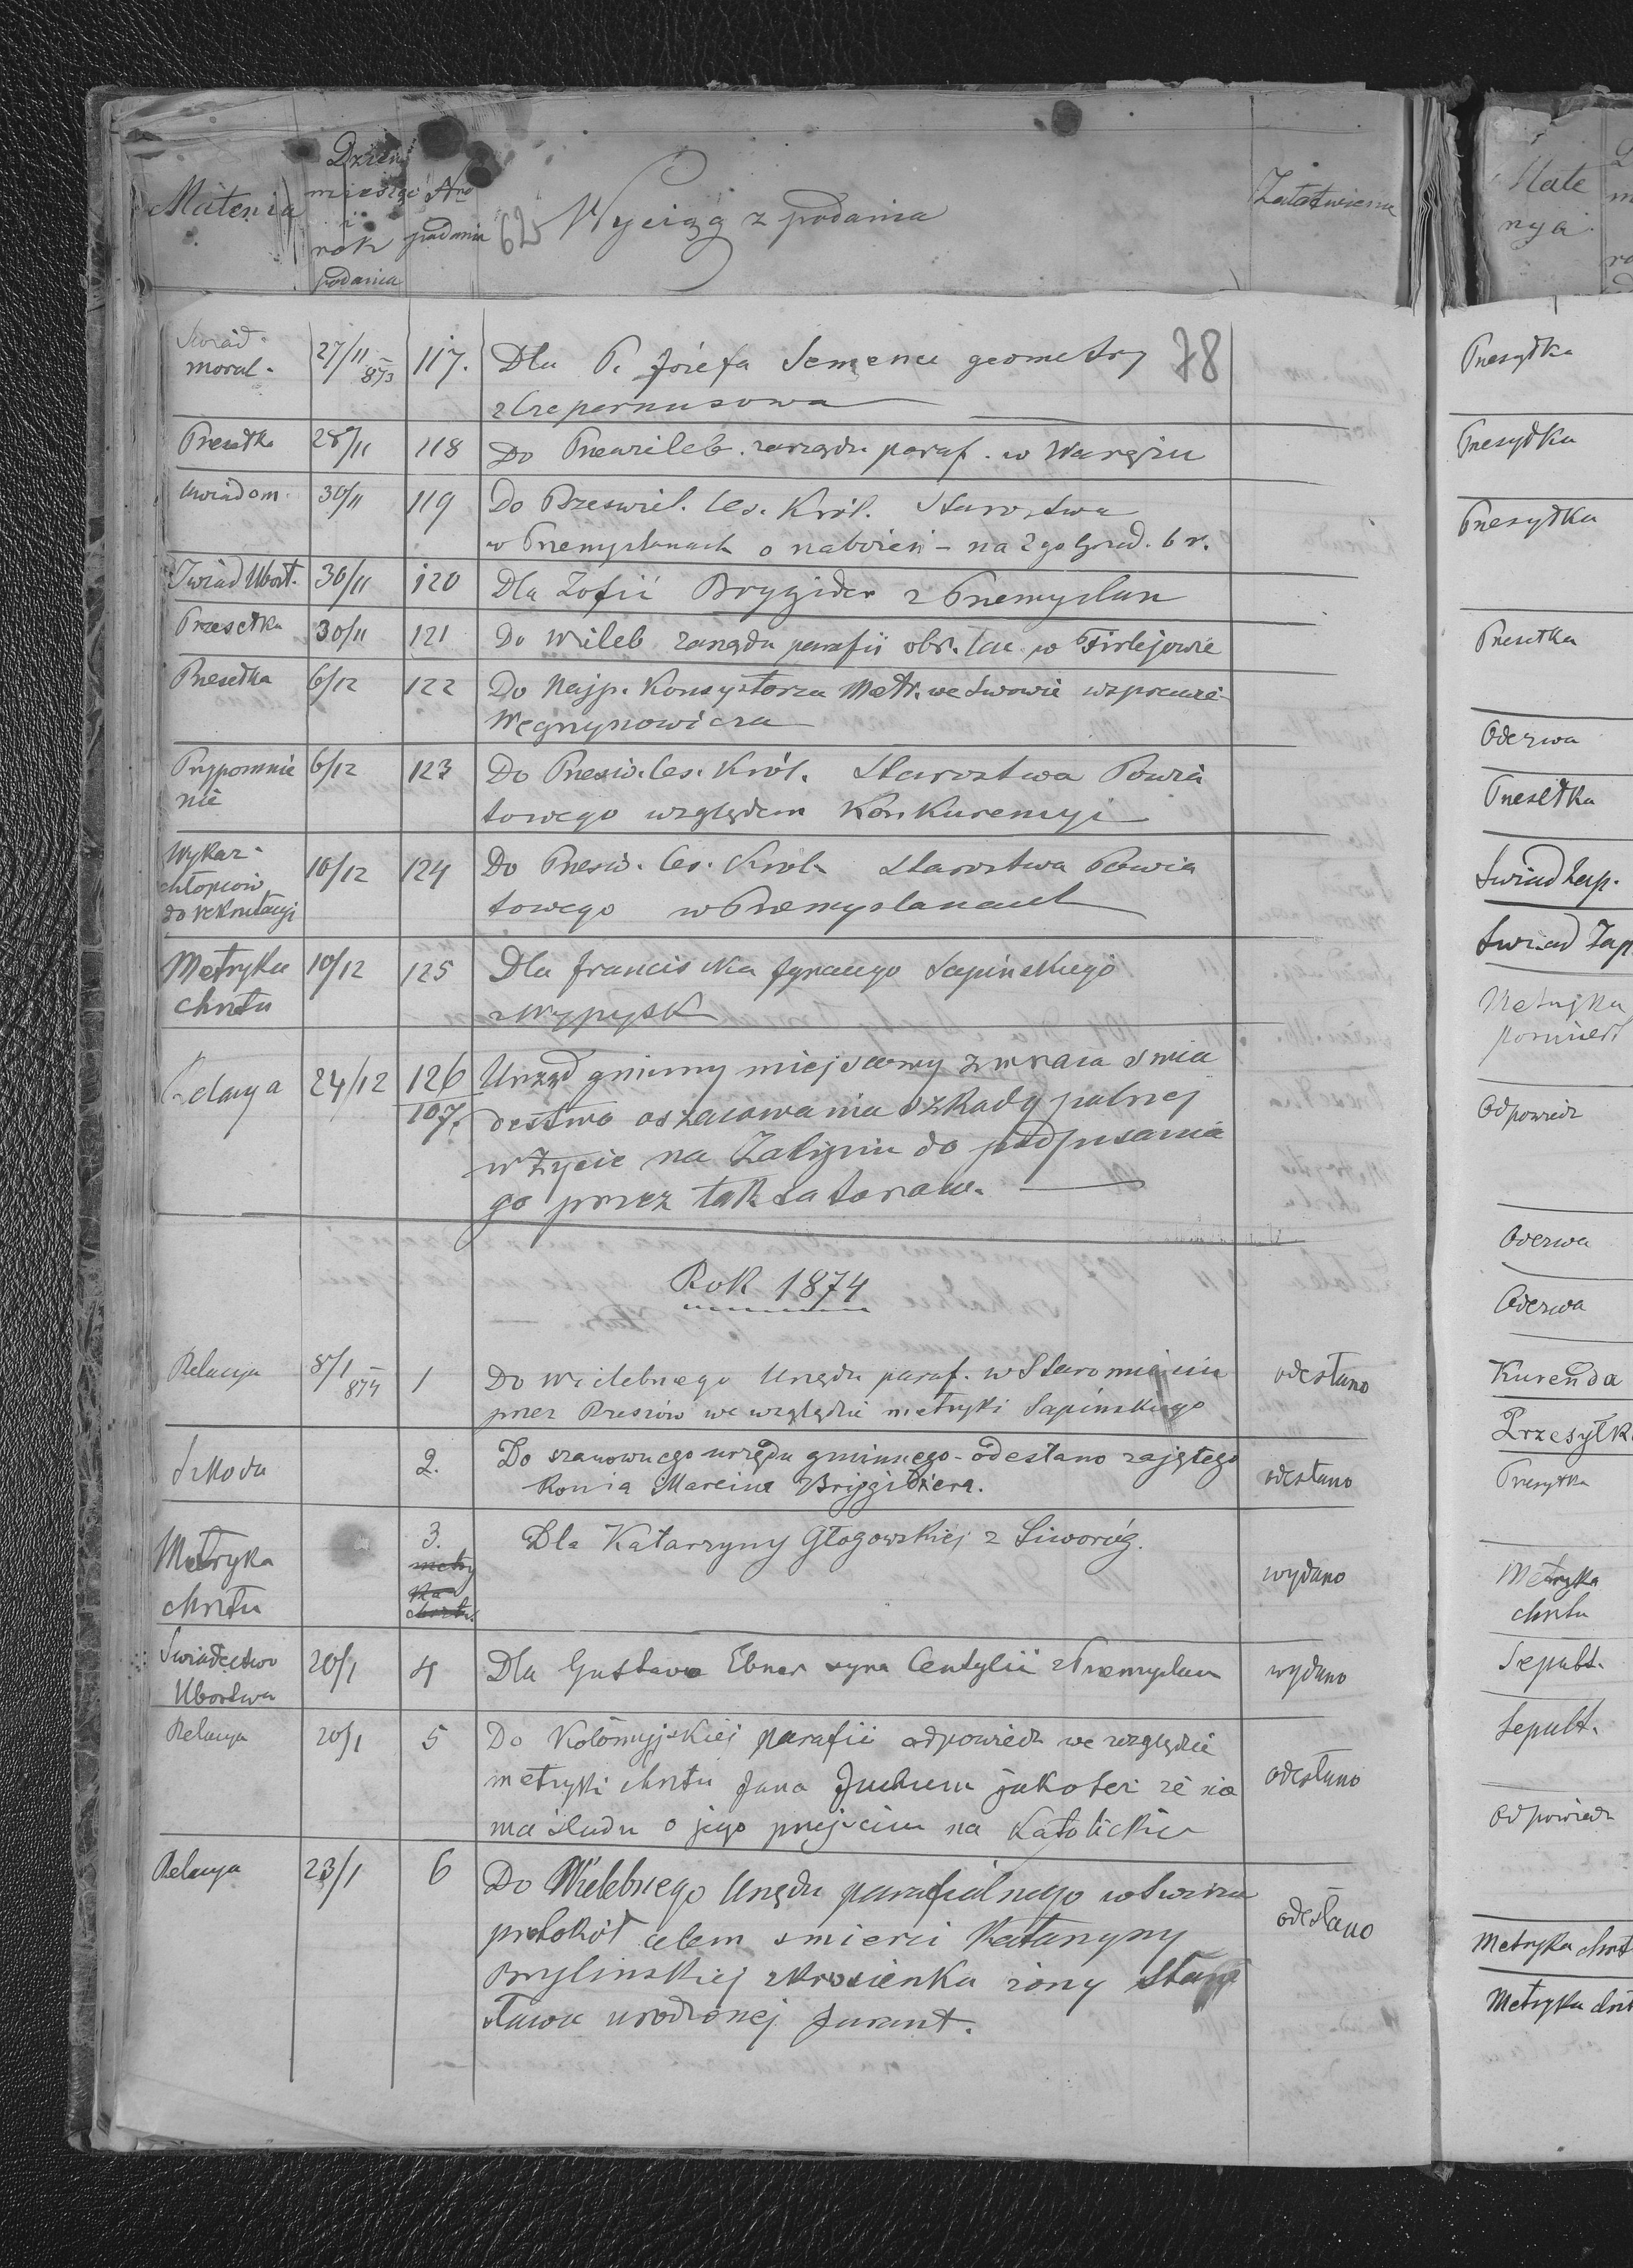 Materia
Dzień
miesiąc
i
rok
podania
Nro
podania
62
Wyciąg z podania
Załatwienie
Swiad.
moral.
27/11 873
117.
Dla P. Józefa Semena geometry
78
Przesełka
28/11
118
Do Przewieleb. zarządu paraf. w Waręzu
uwiadom.
30/11
119
Do Przeswiet. Ces. Król. Starostwa
w Przemyslanach o nabożeń - na 2go Grud. b r.
Swiad Ubost.
30/11
120
Dla Zofii Brygider z Przemyslan
Przesełka
30/11
121
Do Wieleb zarządu parafii obr. łac. w Firlejowie
Przesełka
6/12
122
Do Najp. Konsystorza Metr. we Lwowie wsprawie
Węgrzynowicza
Przypomnie
nie
6/12
123
Do Przesw. Ces. Król. Starostwa Powia
towego względem Konkurencyi
Wykaz
chłopców
do rekrutacyi
10/12
124
Do Przesw. Ces. Król. Starostwa Powia
towego w Przemyslanach
Metryka
chrztu
10/12
125
Dla Franciszka Ignacego Sapinskiego
z Wypysk
Relacya
24/12
126
107.
Urząd gminny miejscowy zwraca swia
dectwo oszacowania szkody polnej
w życie na Zalipiu do podpisania
go przez taksatorow.
Rok 1874
Relacya
8/1 874
1
Do Wielebnego Urzędu paraf. w Staromieściu
przez Rzeszów we względzie metryki Sapińskiego
odesłano
Szkoda
2.
Do szanownego urzędu gminnego - odesłano zajętego
konia Marcina Brygidera.
odesłano
Metryka
chrztu
3.
metry
ka
chrztu
Dla Katarzyny Głogowskiej z Siworóg.
wydano
Swiadectwo
Ubostwa
20/1
4
Dla Gustava Ebner syna Centylii z Przemyslan
wydano
Relacya
20/1
5
Do Kołomyjskiej parafii odpowiedz we względzie
metryki chrztu Jana jakoteż że nie
ma śladu o jego przejściu na Katolickie
odesłano
Relacya
23/1
6
Do Wielebnego Urzędu parafialnego w Swirzu
protokół celem smierci Katarzyny
Brylinskiej z Krosienka żony Stani
sława urodzonej Jurant.
odesłano
Mate
rya
Przesyłka
Przesyłka
Przesyłka
Przesełka
Odezwa
Przesełka
Swiad zap.
Swiad Zap
Metryka
Odpowiedz
Odezwa
Odezwa
Kurenda
Przesyłk
Przesyłka
Metryka
chrztu
Sepult.
Sepult.
Odpowiedz
Metryka chrzt
Metryka chrz